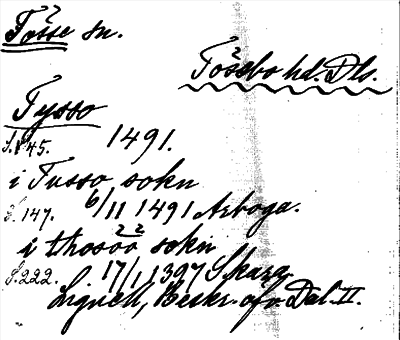 Tösse sn.
Tössbo hd. Dls.
Tysso
S. 145. 1491.
i Tusso sokn
S. 147. 6/11 1491 Arboga.
i thosöö sokn
S. 222. 17/1 1397 Skara
Lignell, Beskr. ofv. Dal. II.